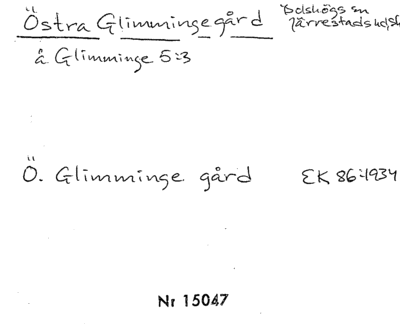 Östra Glimmingegård Bolshögs sn
Järrestads hd, Sk
å Glimminge 5:3
Ö. Glimminge gård EK 86:1934
Nr 15047